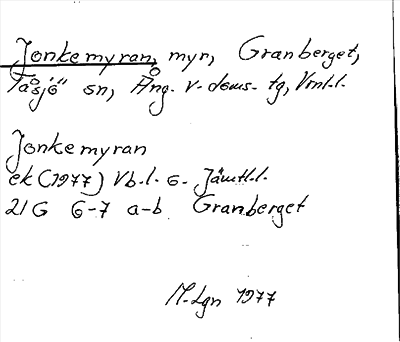 Jonkemyran, myr, Granberget,
Tåsjö sn, Ång. v. doms. tg, Vnl.l.
Jonkemyran
ek (1977) Vb.l. o. Jämtl.l.
21G 6-7 a-b Granberget
M. Lgn 1977